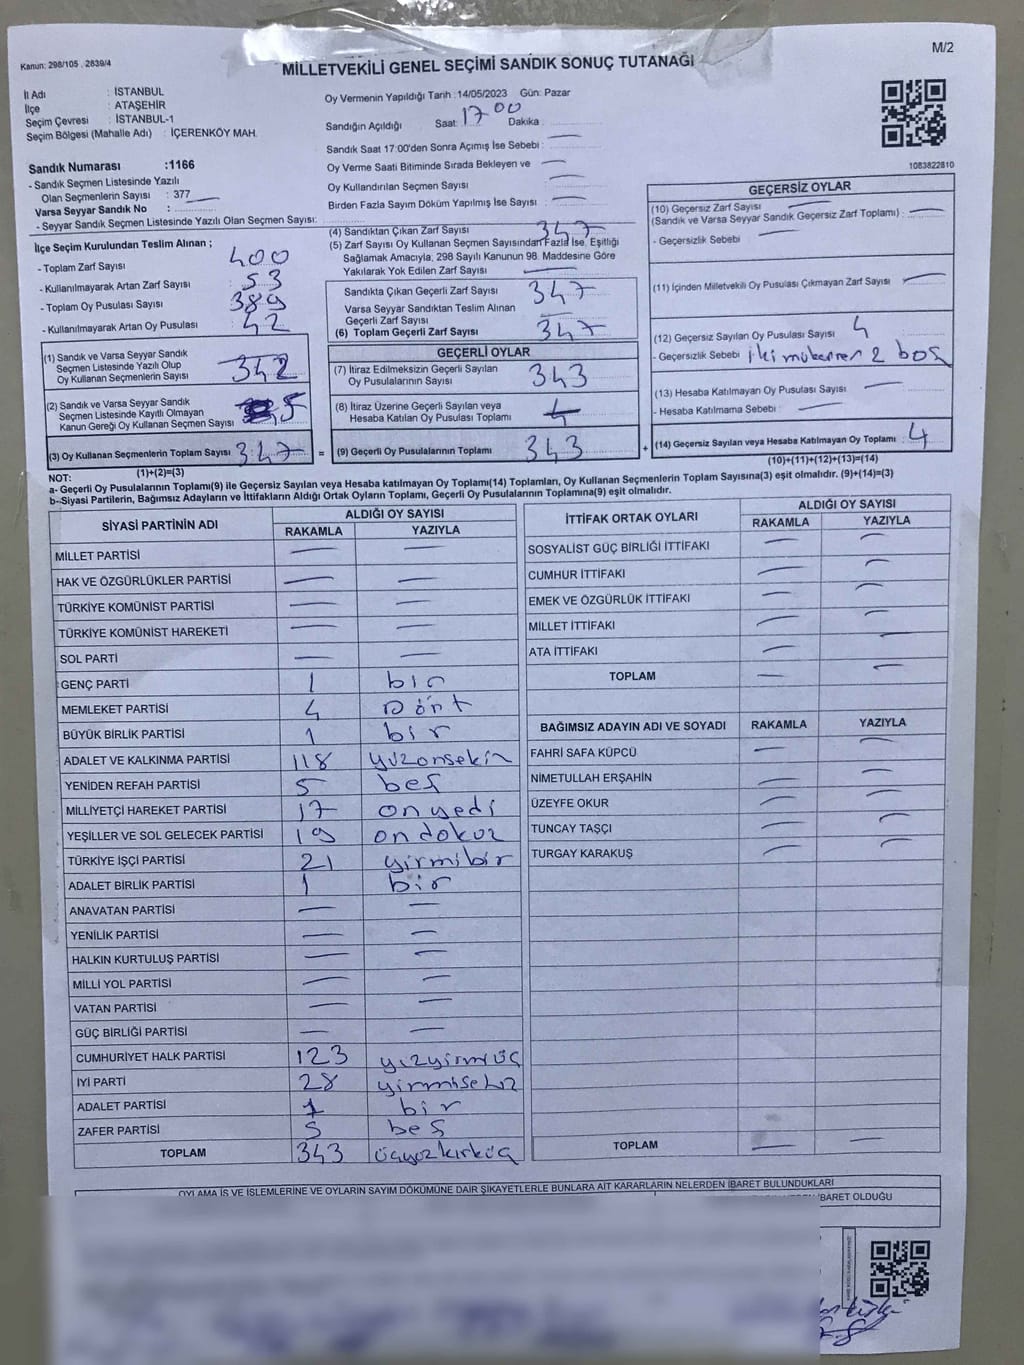 M/2
Kanun: 298/105 , 2839/4
MİLLETVEKİLİ GENEL SEÇİMİ SANDIK SONUÇ TUTANAĞI
İl Adı : İSTANBUL
İlçe : ATAŞEHİR
Seçim Çevresi : İSTANBUL-1
Seçim Bölgesi (Mahalle Adı) : İÇERENKÖY MAH.
Sandık Numarası :1166
- Sandık Seçmen Listesinde Yazılı
Olan Seçmenlerin Sayısı : 377
Varsa Seyyar Sandık No :
- Seyyar Sandık Seçmen Listesinde Yazılı Olan Seçmen Sayısı:
Oy Vermenin Yapıldığı Tarih :14/05/2023 Gün: Pazar
Sandığın Açıldığı Saat: 17 00 Dakika :
Sandık Saat 17:00'den Sonra Açımış İse Sebebi : —
Oy Verme Saati Bitiminde Sırada Bekleyen ve —
Oy Kullandırılan Seçmen Sayısı —
Birden Fazla Sayım Döküm Yapılmış İse Sayısı : —
1083822810
İlçe Seçim Kurulundan Teslim Alınan ;
- Toplam Zarf Sayısı : 400
- Kullanılmayarak Artan Zarf Sayısı : 53
- Toplam Oy Pusulası Sayısı : 389
- Kullanılmayarak Artan Oy Pusulası : 42
(1) Sandık ve Varsa Seyyar Sandık
Seçmen Listesinde Yazılı Olup
Oy Kullanan Seçmenlerin Sayısı : 342
(2) Sandık ve Varsa Seyyar Sandık
Seçmen Listesinde Kayıtlı Olmayan
Kanun Gereği Oy Kullanan Seçmen Sayısı : 5
(3) Oy Kullanan Seçmenlerin Toplam Sayısı : 347
(1)+(2)=(3)
(4) Sandıktan Çıkan Zarf Sayısı : 347
(5) Zarf Sayısı Oy Kullanan Seçmen Sayısından Fazla İse, Eşitliği
Sağlamak Amacıyla, 298 Sayılı Kanunun 98. Maddesine Göre
Yakılarak Yok Edilen Zarf Sayısı : —
Sandıkta Çıkan Geçerli Zarf Sayısı : 347
Varsa Seyyar Sandıktan Teslim Alınan
Geçerli Zarf Sayısı : —
(6) Toplam Geçerli Zarf Sayısı : 347
GEÇERLİ OYLAR
(7) İtiraz Edilmeksizin Geçerli Sayılan
Oy Pusulalarının Sayısı : 343
(8) İtiraz Üzerine Geçerli Sayılan veya
Hesaba Katılan Oy Pusulası Toplamı :
= (9) Geçerli Oy Pusulalarının Toplamı : 343
GEÇERSİZ OYLAR
(10) Geçersiz Zarf Sayısı —
(Sandık ve Varsa Seyyar Sandık Geçersiz Zarf Toplamı) : —
- Geçersizlik Sebebi : —
(11) İçinden Milletvekili Oy Pusulası Çıkmayan Zarf Sayısı : —
(12) Geçersiz Sayılan Oy Pusulası Sayısı : 4
- Geçersizlik Sebebi : iki mükerrer 2 boş
(13) Hesaba Katılmayan Oy Pusulası Sayısı : —
- Hesaba Katılmama Sebebi : —
+ (14) Geçersiz Sayılan veya Hesaba Katılmayan Oy Toplamı : 4
(10)+(11)+(12)+(13)=(14)
NOT:
a- Geçerli Oy Pusulasının Toplamı(9) ile Geçersiz Sayılan veya Hesaba katılmayan Oy Toplamı(14) Toplamları, Oy Kullanan Seçmenlerin Toplam Sayısına(3) eşit olmalıdır. (9)+(14)=(3)
b- Siyasi Partilerin, Bağımsız Adayların ve İttifakların Aldığı Ortak Oyların Toplamı, Geçerli Oy Pusulalarının Toplamına(9) eşit olmalıdır.
SİYASİ PARTİNİN ADI ALDIĞI OY SAYISI
RAKAMLA YAZIYLA
MİLLET PARTİSİ — —
HAK VE ÖZGÜRLÜKLER PARTİSİ — —
TÜRKİYE KOMÜNİST PARTİSİ — —
TÜRKİYE KOMÜNİST HAREKETİ — —
SOL PARTİ — —
GENÇ PARTİ 1 bir
MEMLEKET PARTİSİ 4 Dört
BÜYÜK BİRLİK PARTİSİ 1 bir
ADALET VE KALKINMA PARTİSİ 118 yüzonsekiz
YENİDEN REFAH PARTİSİ 5 beş
MİLLİYETÇİ HAREKET PARTİSİ 17 onyedi
YEŞİLLER VE SOL GELECEK PARTİSİ 19 ondokuz
TÜRKİYE İŞÇİ PARTİSİ 21 yirmibir
ADALET BİRLİK PARTİSİ 1 bir
ANAVATAN PARTİSİ — —
YENİLİK PARTİSİ — —
HALKIN KURTULUŞ PARTİSİ — —
MİLLİ YOL PARTİSİ — —
VATAN PARTİSİ — —
GÜÇ BİRLİĞİ PARTİSİ — —
CUMHURİYET HALK PARTİSİ 123 yüzyirmiüç
İYİ PARTİ 28 yirmisekiz
ADALET PARTİSİ 1 bir
ZAFER PARTİSİ 5 beş
TOPLAM 343 üçyüzkırküç
İTTİFAK ORTAK OYLARI ALDIĞI OY SAYISI
RAKAMLA YAZIYLA
SOSYALİST GÜÇ BİRLİĞİ İTTİFAKI — —
CUMHUR İTTİFAKI — —
EMEK VE ÖZGÜRLÜK İTTİFAKI — —
MİLLET İTTİFAKI — —
ATA İTTİFAKI — —
TOPLAM — —
BAĞIMSIZ ADAYIN ADI VE SOYADI RAKAMLA YAZIYLA
FAHRİ SAFA KÜPCÜ — —
NİMETULLAH ERŞAHİN — —
ÜZEYFE OKUR — —
TUNCAY TAŞÇI — —
TURGAY KARAKUŞ — —
TOPLAM — —
OYLAMA İŞ VE İŞLEMLERİNE VE OYLARIN SAYIM DÖKÜMÜNE DAİR ŞİKAYETLERLE BUNLARA AİT KARARLARIN NELERDEN İBARET BULUNDUKLARI
İBARET OLDUĞU